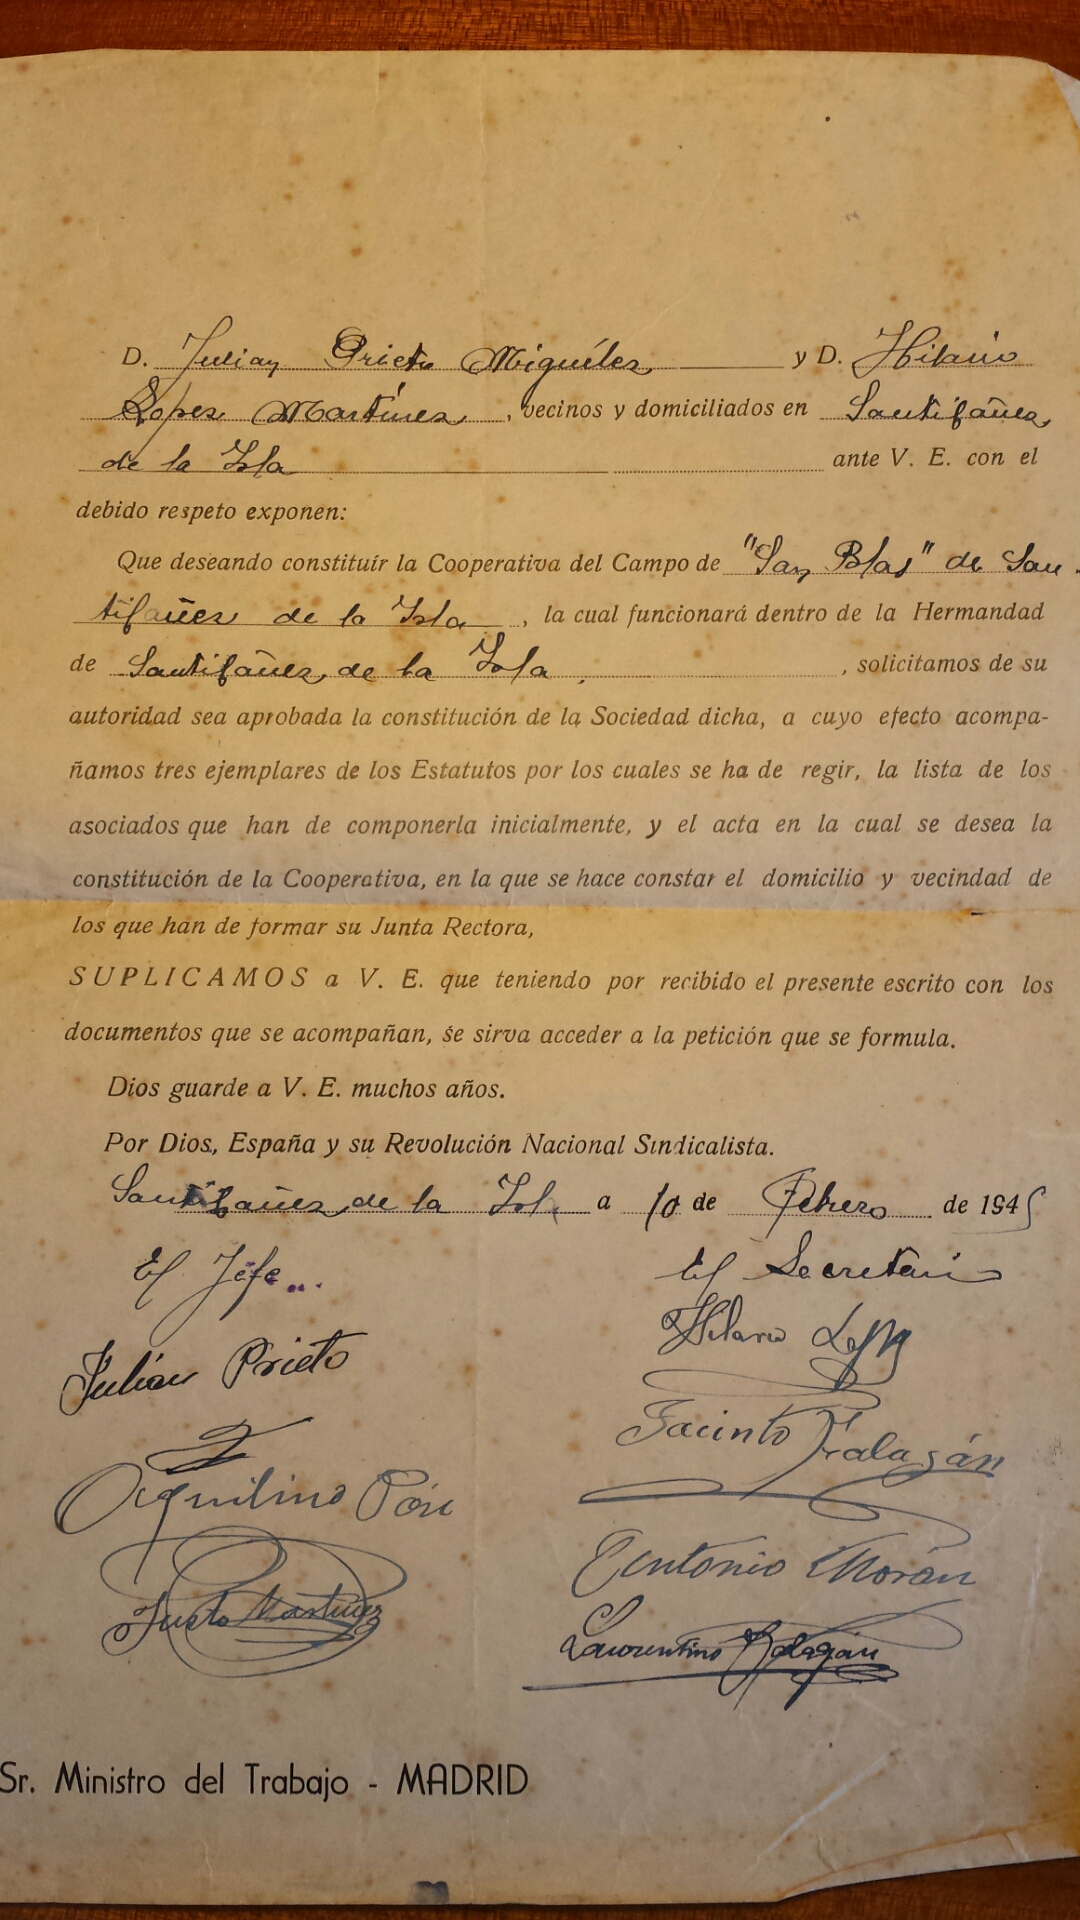 D. Julian Prieto Miguélez y D. Hilario
Lopez Martínez, vecinos y domiciliados en Santibáñez
de la Isla ante V. E. con el
debido respeto exponen:
Que deseando constituir la Cooperativa del Campo de "San Blas" de San-
tibañez de la Isla, la cual funcionará dentro de la Hermandad
de Santibáñez de la Isla, solicitamos de su
autoridad sea aprobada la constitución de la Sociedad dicha, a cuyo efecto acompa-
ñamos tres ejemplares de los Estatutos por los cuales se ha de regir, la lista de los
asociados que han de componerla inicialmente, y el acta en la cual se desea la
constitución de la Cooperativa, en la que se hace constar el domicilio y vecindad de
los que han de formar su Junta Rectora,
SUPLICAMOS a V. E. que teniendo por recibido el presente escrito con los
documentos que se acompañan, se sirva acceder a la petición que se formula.
Dios guarde a V. E. muchos años.
Por Dios, España y su Revolución Nacional Sindicalista.
Santibáñez de la Isla a 10 de Febrero de 1945
El Jefe El Secretario
Julián Prieto Hilario
Jacinto Falagán
Aquilino
Antonio Morán
Justo Martínez Laurentino Falagán
Sr. Ministro del Trabajo - MADRID